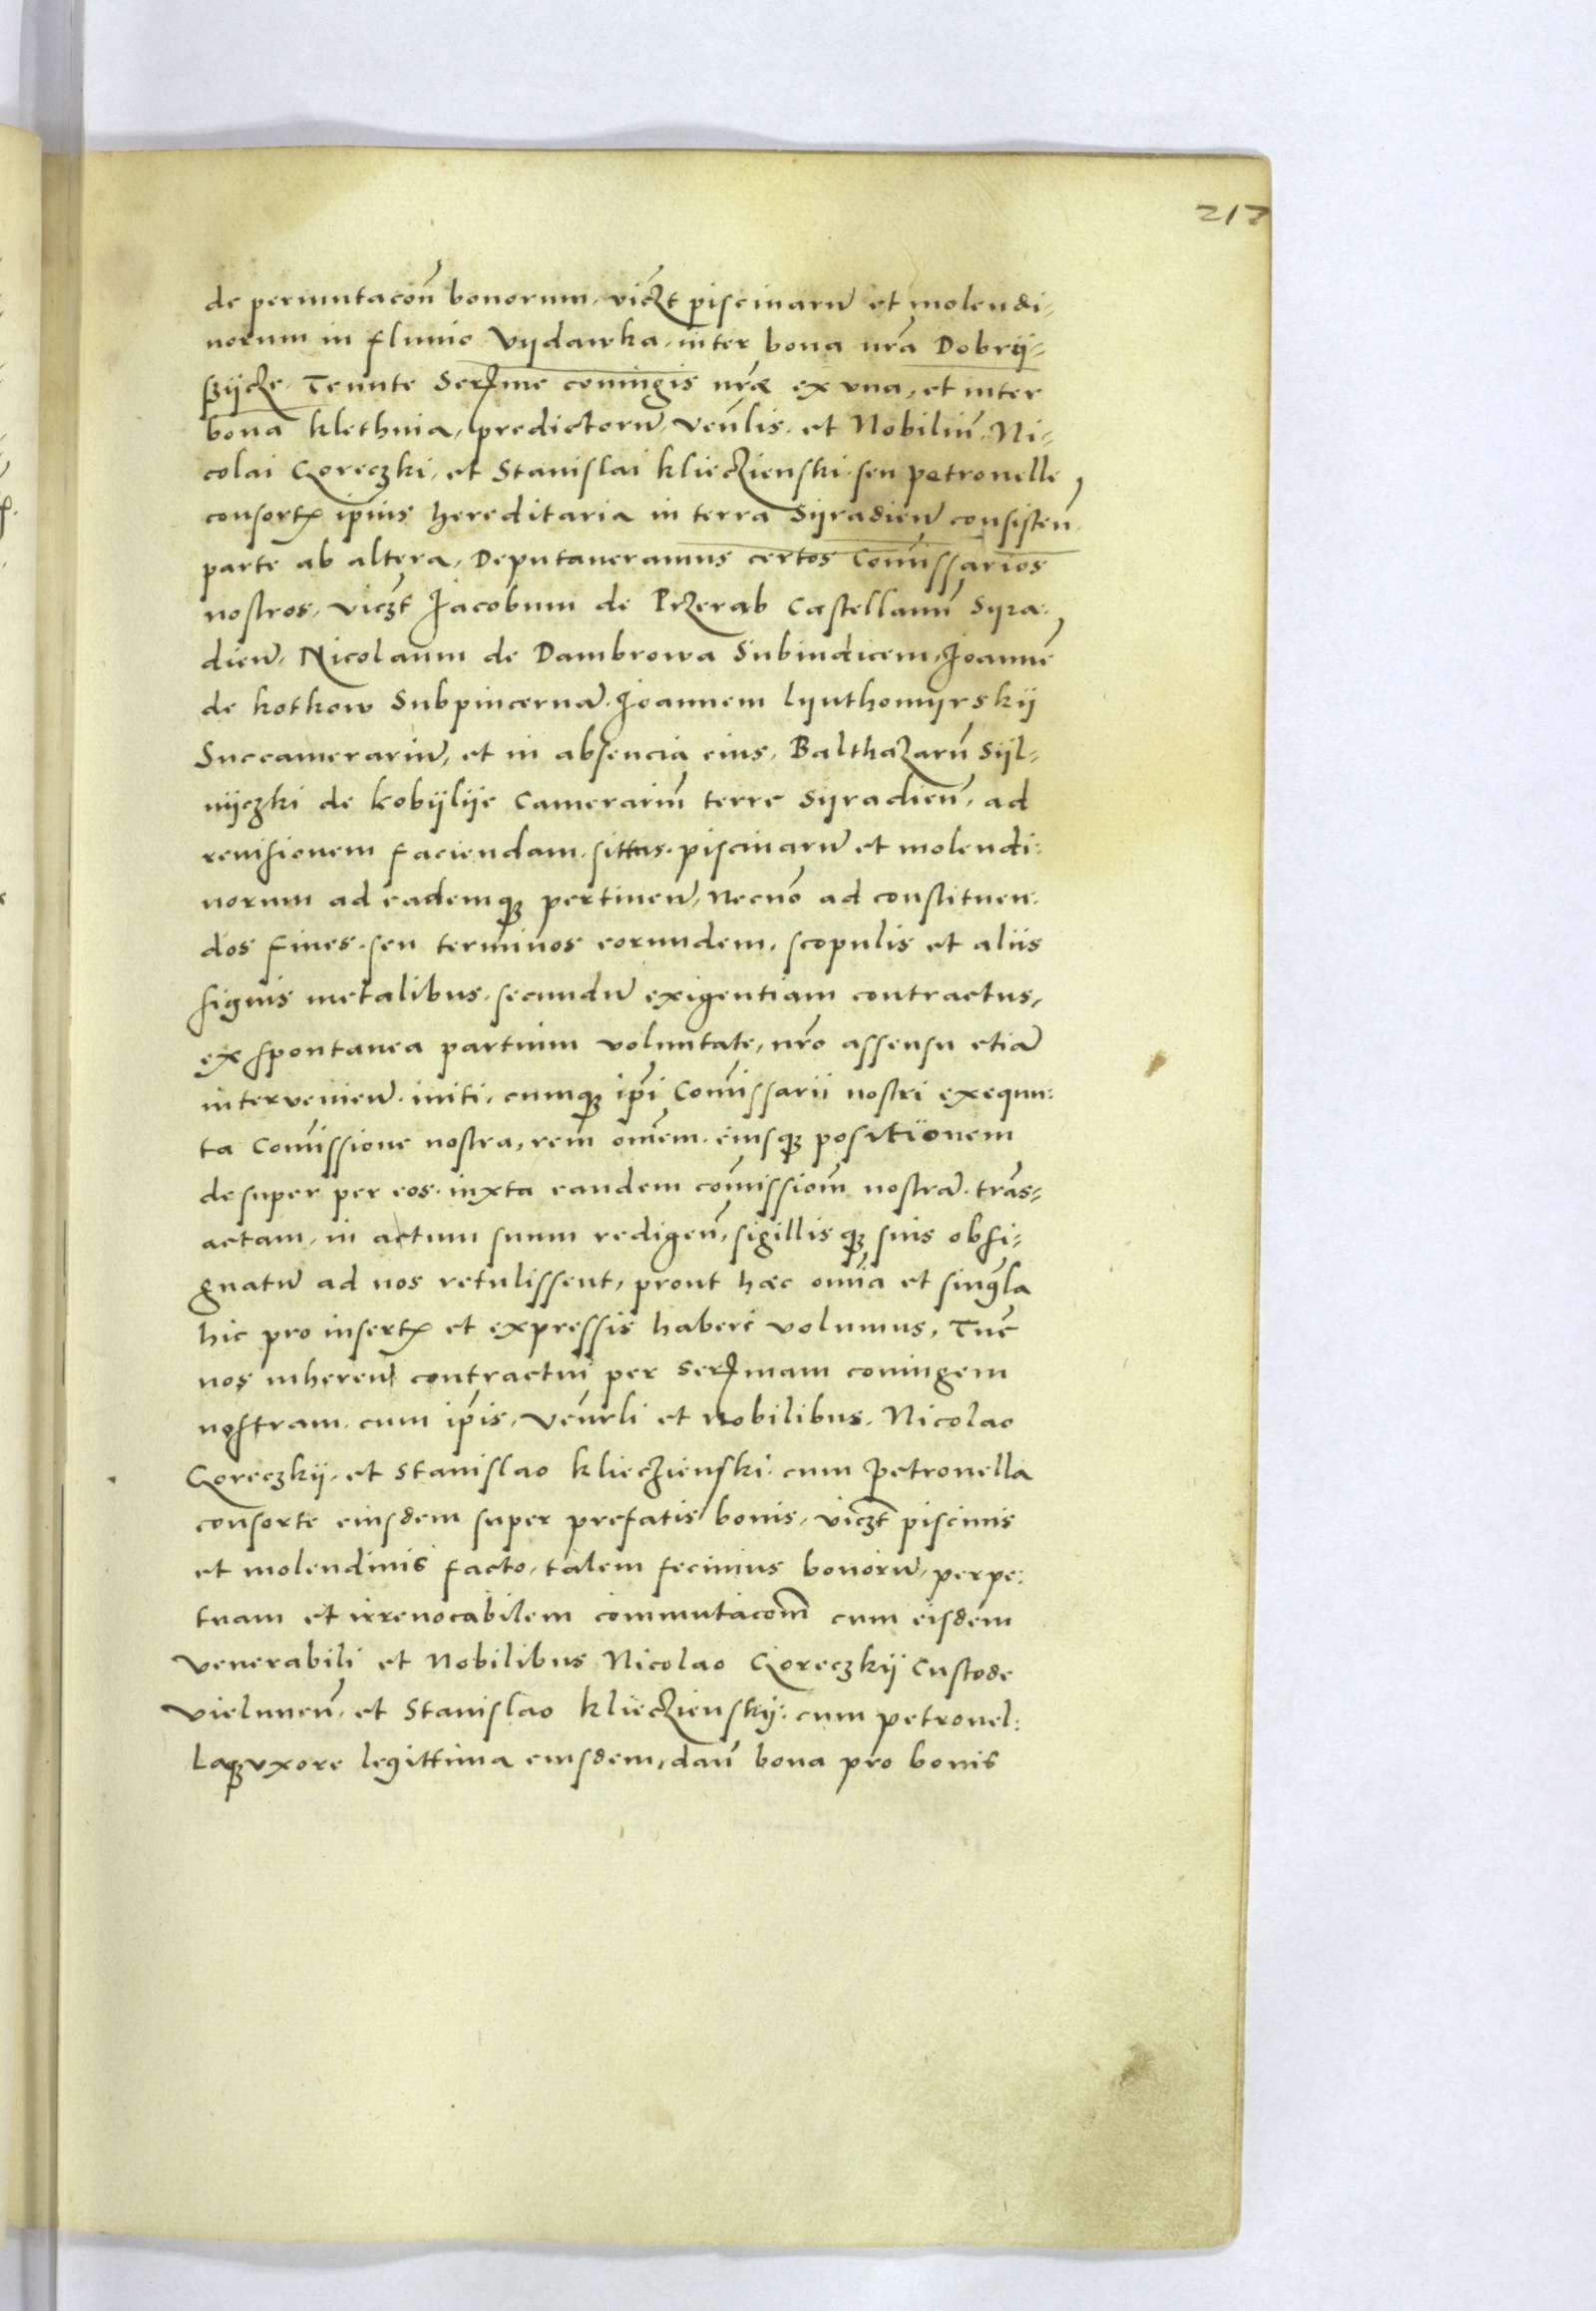 217
de permutacoñ bonorum, viczt piscinarũ et molendi¬
norum in fluuio Vijdawka, inter bona nr̃a Dobrij¬
szijcze, Tenute Serme coniugis nr̃æ ex vna, et inter
bona Klethnia, predictorũ, Veñlis, et Nobiliũ, Ni¬
colai Goreczki, et Stanislai Klieczienski, seu Petronelle
consort̃ ip̃ius hereditaria in terra Sijradieñ consisteñ,
parte ab altera, Deputaueramus certos Com̃issarios
nostros, viczt Jacobum de Przerab Castellanũ Syra¬
dieñ, Nicolaum de Dambrowa Subiudicem, Joannẽ
de kotkow Subpincernã, Joannem lijuthomijrskij
Succamerariũ, et in absencia eius, Balthazarũ Sijl¬
nijczki de Kobijlije Camerariũ terre Sijradieñ, ad
reuisionem faciendam, sittus, piscinarũ et molendi:
norum ad eademq3 pertineñ, Necnõ ad constituen:
dos fines, seu terminos eorundem, scopulis et aliis
signis metalibus, secundũ exigentiam contractus,
ex spontanea partium voluntate, nr̃o assensu etiã
intervenieñ, initi, cumq3 ip̃i Com̃issarii nostri exequu:
ta Com̃issione nostra, rem om̃em, eiusq3 positionem
desuper per eos, iuxta eandem com̃issiom̃ nostrã, trãs¬
actam, in actum suum redigeñ, sigillisq3 suis obsi¬
gnatũ ad nos retulissent, prout hæc om̃ia et singla
hic pro insert̃ et expressis haberi volumus, Tũc
nos inhereñ contractui per Sermam coniugem
nostram, cum ip̃is, Veñrli et Nobilibus, Nicolao
Goreczkij, et Stanislao Klieczienski, cum Petronella
consorte eiusdem super prefatis bonis, viczt piscinis
et molendinis facto, talem fecimus bonorũ, perpe:
tuam et irreuocabilem commutacom̃ cum eisdem
Venerabili et Nobilibus Nicolao Goreczkij Custode
Vieluneñ, et Stanislao Klieczienskij: cum Petronel:
laq3 vxore legittima eiusdem, dañ bona pro bonis